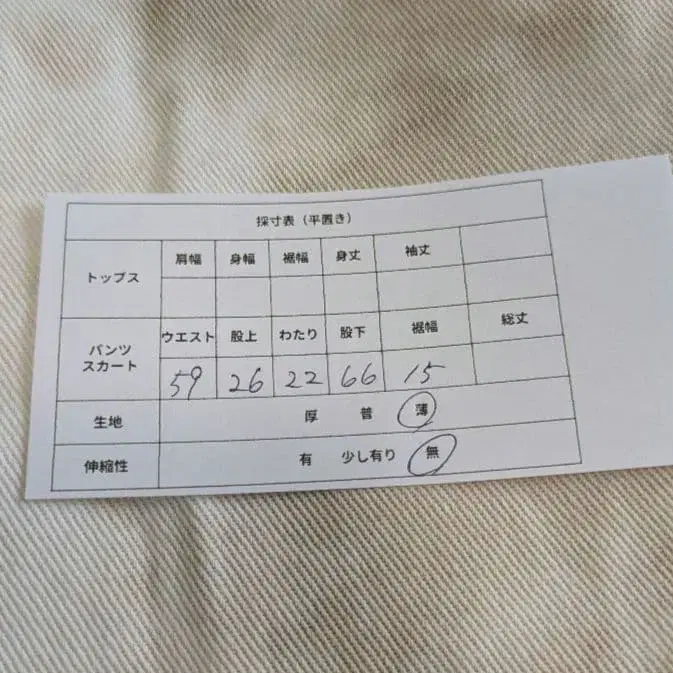 採寸表（平置き）
トップス 肩幅 身幅 裾幅 身丈 袖丈
パンツ スカート ウエスト 股上 わたり 股下 裾幅 総丈
59 26 22 66 15
生地 厚 普 薄
伸縮性 有 少し有り 無